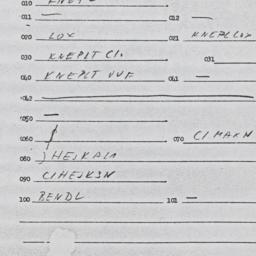 010
011 — 012 —
020 LOX 021 KNEPLCOX
030 KNEPLT CI. 031
040 KNEPLT VVF 041 —
042
050 —
060 070 CIMAKN
080 HEJKALA
090 CIHEJKSN
100 BENDL 101 —